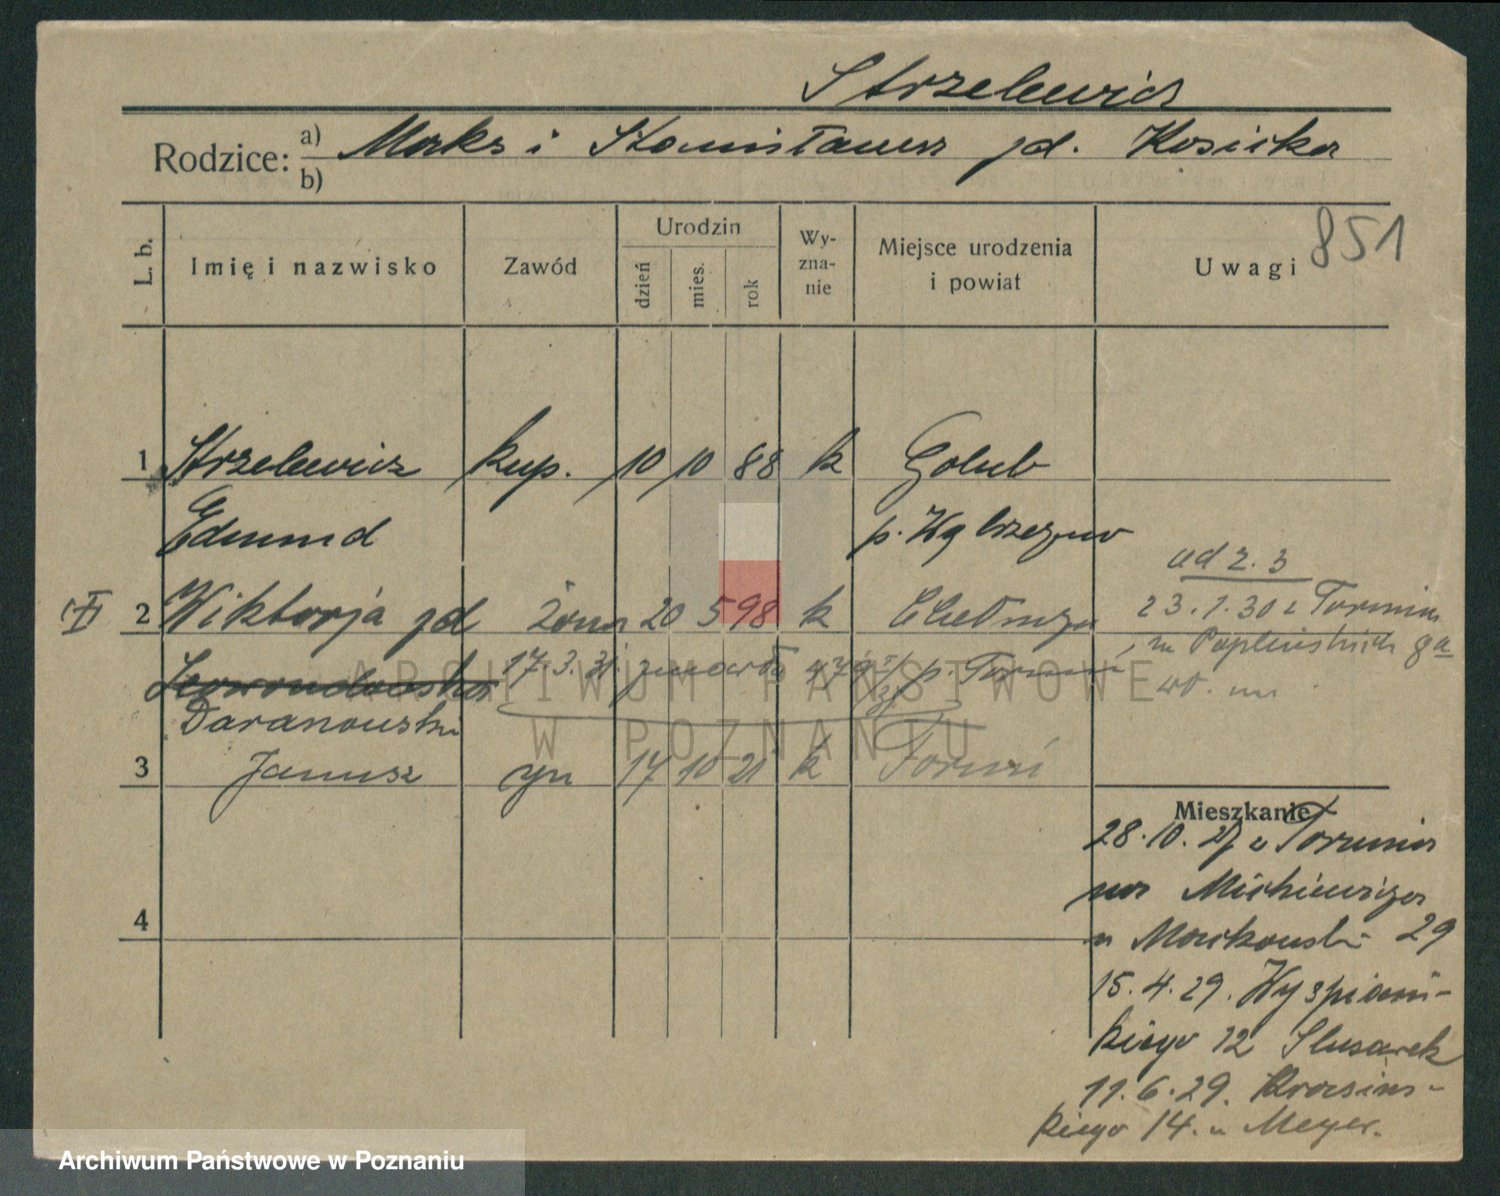 Strzelewicz
Rodzice: a) Maks i Stanisława zd. Kosicka
b)
L. b. Imię i nazwisko Zawód Urodzin dzień mies. rok Wy-zna-nie Miejsce urodzenia i powiat Uwagi 851
1 Strzelewicz kup. 10 10 88 k Golub
Edmund p. Wąbrzeźno
ad z. 3
2 Wiktorja zd żona 20 5 98 k Chełmża
23.1.30 z Torunia
17.3.31. zmarła p. Toruń
Daranowska
3 Janusz syn 17 10 21 k Toruń
Mieszkanie
28.10.27 z Torunia
na Mickiewicza
4
u Markowski 29
15.4.29. Wyspiań-
kiego 12 Slusarek
11.6.29. Krasińs-
kiego 14. u Meyer.
ARCHIWUM PAŃSTWOWE
W POZNANIU
Archiwum Państwowe w Poznaniu